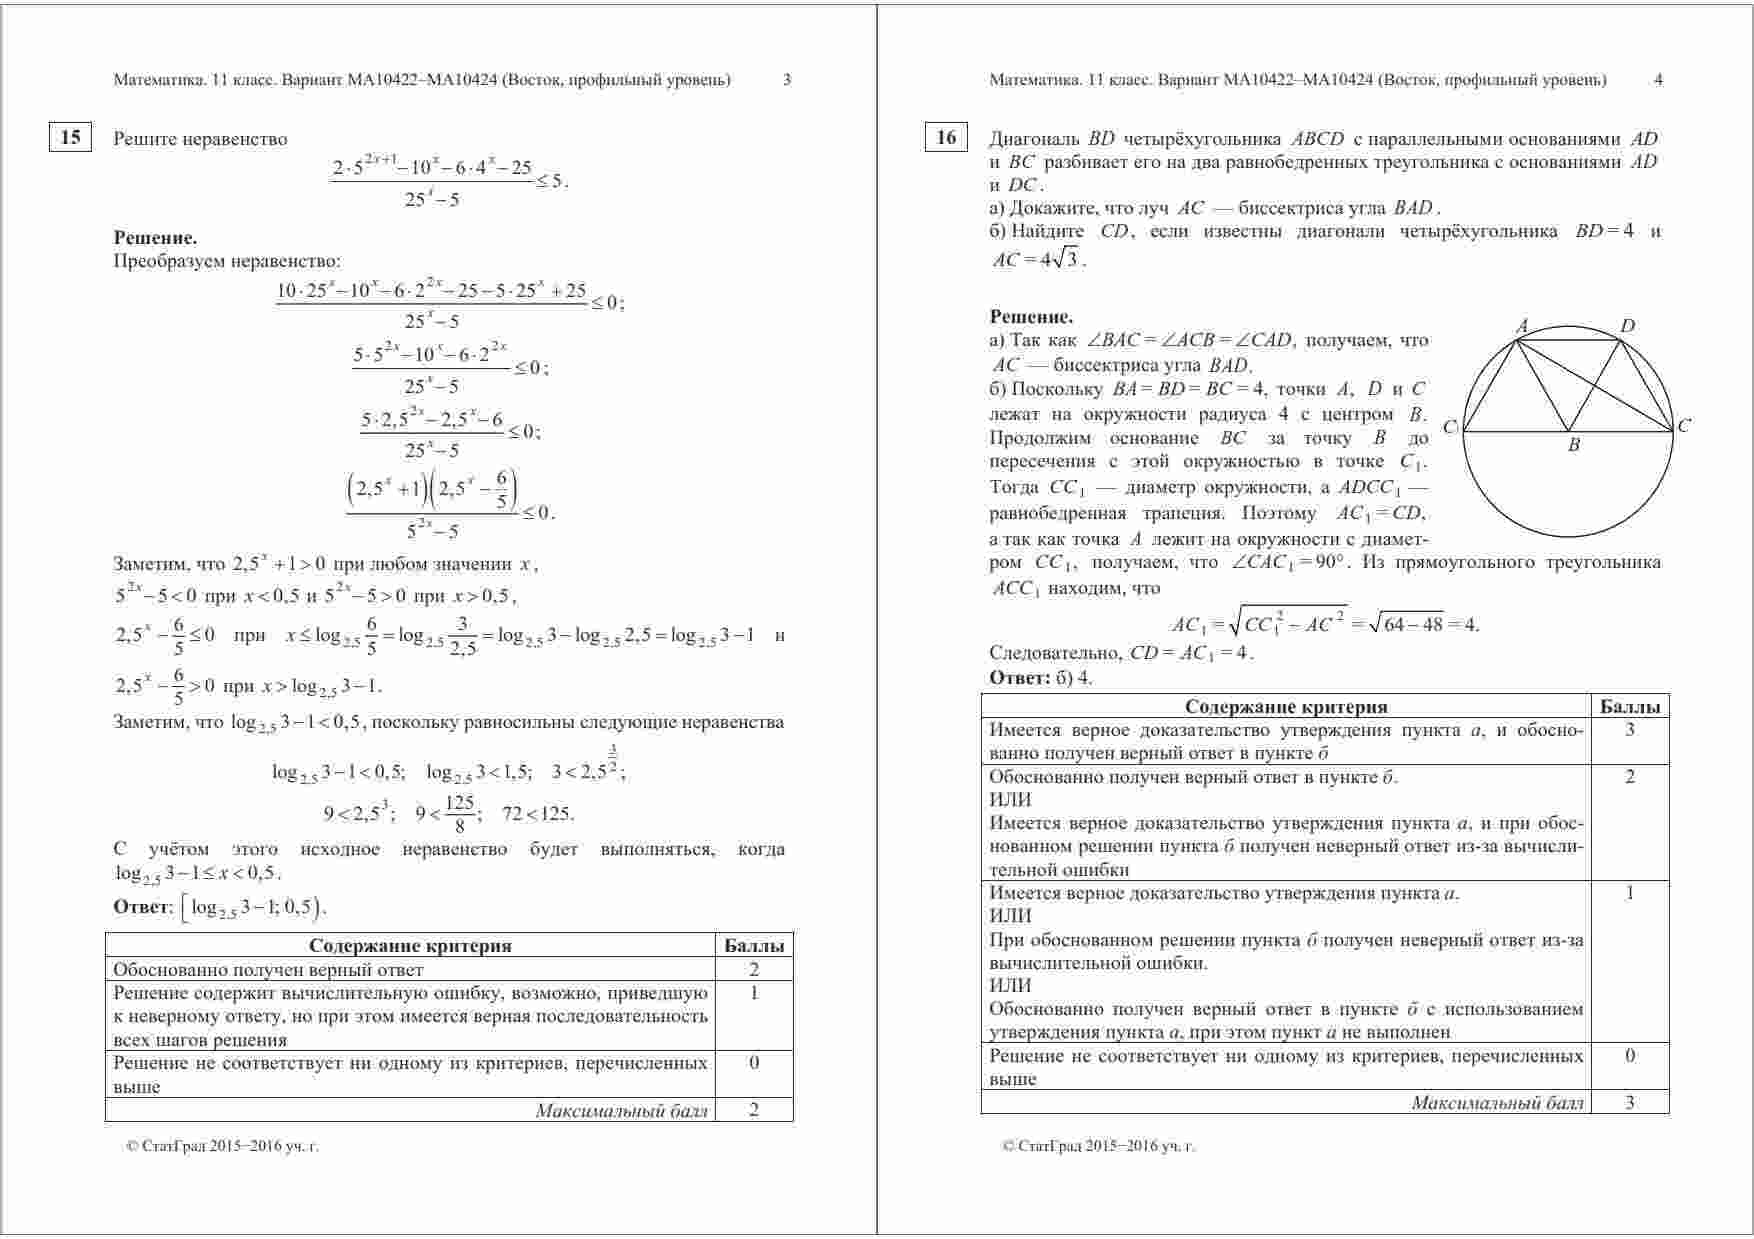 Математика. 11 класс. Вариант МА10422–МА10424 (Восток, профильный уровень) 3
15 Решите неравенство
(2·5^(2x+1) − 10^x − 6·4^x − 25) / (25^x − 5) ≤ 5.
Решение.
Преобразуем неравенство:
(10·25^x − 10^x − 6·2^(2x) − 25 − 5·25^x + 25) / (25^x − 5) ≤ 0;
(5·5^(2x) − 10^x − 6·2^(2x)) / (25^x − 5) ≤ 0;
(5·2,5^(2x) − 2,5^x − 6) / (25^x − 5) ≤ 0;
((2,5^x + 1)(2,5^x − 6/5)) / (5^(2x) − 5) ≤ 0.
Заметим, что 2,5^x + 1 > 0 при любом значении x,
5^(2x) − 5 < 0 при x < 0,5 и 5^(2x) − 5 > 0 при x > 0,5,
2,5^x − 6/5 ≤ 0 при x ≤ log_2,5 6/5 = log_2,5 3/2,5 = log_2,5 3 − log_2,5 2,5 = log_2,5 3 − 1 и
2,5^x − 6/5 > 0 при x > log_2,5 3 − 1.
Заметим, что log_2,5 3 − 1 < 0,5, поскольку равносильны следующие неравенства
log_2,5 3 − 1 < 0,5; log_2,5 3 < 1,5; 3 < 2,5^(3/2);
9 < 2,5^3; 9 < 125/8; 72 < 125.
С учётом этого исходное неравенство будет выполняться, когда
log_2,5 3 − 1 ≤ x < 0,5.
Ответ: [log_2,5 3 − 1; 0,5).
Содержание критерия Баллы
Обоснованно получен верный ответ 2
Решение содержит вычислительную ошибку, возможно, приведшую 1
к неверному ответу, но при этом имеется верная последовательность
всех шагов решения
Решение не соответствует ни одному из критериев, перечисленных 0
выше
Максимальный балл 2
© СтатГрад 2015−2016 уч. г.
Математика. 11 класс. Вариант МА10422–МА10424 (Восток, профильный уровень) 4
16 Диагональ BD четырёхугольника ABCD с параллельными основаниями AD
и BC разбивает его на два равнобедренных треугольника с основаниями AD
и DC.
а) Докажите, что луч AC — биссектриса угла BAD.
б) Найдите CD, если известны диагонали четырёхугольника BD = 4 и
AC = 4√3.
Решение.
а) Так как ∠BAC = ∠ACB = ∠CAD, получаем, что
AC — биссектриса угла BAD.
б) Поскольку BA = BD = BC = 4, точки A, D и C
лежат на окружности радиуса 4 с центром B.
Продолжим основание BC за точку B до
пересечения с этой окружностью в точке C₁.
Тогда CC₁ — диаметр окружности, а ADCC₁ —
равнобедренная трапеция. Поэтому AC₁ = CD,
а так как точка A лежит на окружности с диамет-
ром CC₁, получаем, что ∠CAC₁ = 90°. Из прямоугольного треугольника
ACC₁ находим, что
AC₁ = √(CC₁² − AC²) = √(64 − 48) = 4.
Следовательно, CD = AC₁ = 4.
Ответ: б) 4.
A D
C C
B
Содержание критерия Баллы
Имеется верное доказательство утверждения пункта а, и обосно- 3
ванно получен верный ответ в пункте б
Обоснованно получен верный ответ в пункте б. 2
ИЛИ
Имеется верное доказательство утверждения пункта а, и при обос-
нованном решении пункта б получен неверный ответ из-за вычисли-
тельной ошибки
Имеется верное доказательство утверждения пункта а. 1
ИЛИ
При обоснованном решении пункта б получен неверный ответ из-за
вычислительной ошибки.
ИЛИ
Обоснованно получен верный ответ в пункте б с использованием
утверждения пункта а, при этом пункт а не выполнен
Решение не соответствует ни одному из критериев, перечисленных 0
выше
Максимальный балл 3
© СтатГрад 2015−2016 уч. г.